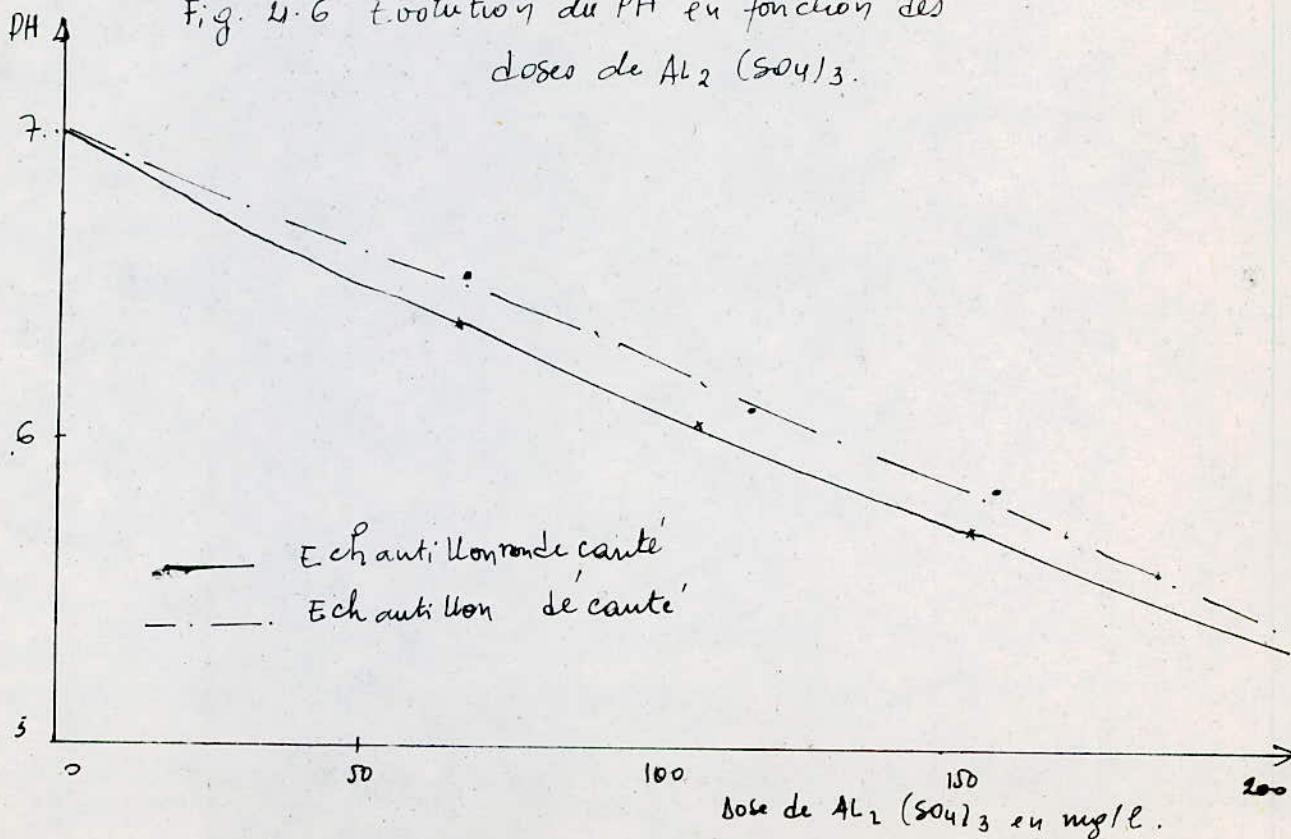 Fig. 4.6 Evolution du PH en fonction des
doses de AL2 (SO4)3.
PH
7
6
5
Echantillon non decanté
Echantillon décanté
0 50 100 150 200
Dose de AL2 (SO4)3 en mg/l.